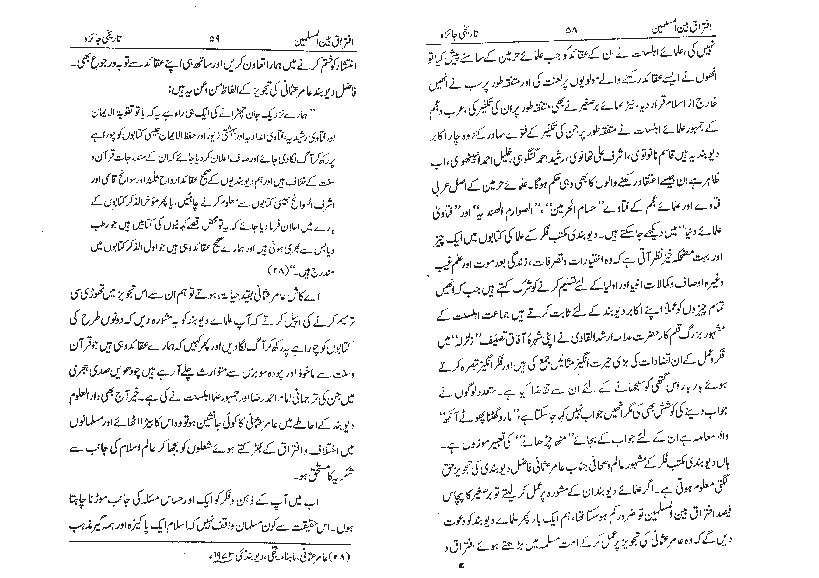 افتراق بین المسلمین ۵۸ تاریخی جائزہ
نہیں کی، علمائے اہلسنت نے ان کے عقائد کو جب علمائے حرمین کے سامنے پیش کیا تو
انھوں نے ایسے عقائد رکھنے والے مولویوں پر لعنت کی اور متفقہ طور پر سب نے انھیں
خارج از اسلام قرار دیا، نیز علمائے برصغیر نے بھی، متفقہ طور پر ان کی تکفیر کی، عرب و عجم
کے جمہور علمائے اہلسنت نے متفقہ طور پر جن کی تکفیر کے فتوے صادر کئے وہ چار اکابر
دیوبند یہ ہیں قاسم نانوتوی، اشرف علی تھانوی، رشید احمد گنگوہی، خلیل احمد انبیٹھوی، اب
ظاہر ہے ان جیسے اعتقاد رکھنے والوں کا بھی وہی حکم ہوگا علمائے حرمین کے اصل عربی
فتاوے اور علمائے عجم کے فتاوے "حسام الحرمین"، "الصوارم الہندیہ" اور "فتاویٰ
علمائے دنیا" میں دیکھے جا سکتے ہیں۔ دیوبندی مکتب فکر کے علما کی کتابوں میں ایک چیز
اور بہت مضحکہ خیز نظر آتی ہے کہ وہ اختیارات و تصرفات، زندگی بعد موت اور علم غیب
وغیرہ اوصاف و کمالات انبیا اور اولیا کے لئے تسلیم کرنے کو شرک کہتے ہیں جب کہ انھیں
تمام چیزوں کو عملاً اپنے اکابر دیوبند کے لئے ثابت کرتے ہیں جماعت اہلسنت کے
مشہور بزرگ قلم کار حضرت علامہ ارشد القادری نے اپنی شہرۂ آفاق تصنیف "زلزلہ" میں
فکر و عمل کے ان تضادات کی بڑی حیرت انگیز مثالیں جمع کی ہیں اور فکر انگیز تبصرہ کرتے
ہوئے بار بار اس گتھی کو سلجھانے کے لئے ان سے تقاضا کیا ہے۔ متعدد لوگوں نے
جواب دینے کی کوشش بھی کی مگر انھیں جواب نہیں کہا جا سکتا ہے، "مارو گھٹنا پھوٹے آنکھ"
والا معاملہ ہے ان کے لئے جواب کے بجائے "منھ چڑھانے" کی تعبیر موزوں ہے۔
ہاں دیوبندی مکتب فکر کے مشہور عالم و صحافی جناب عامر عثمانی فاضل دیوبند کی تجویز حق
لگتی معلوم ہوتی ہے۔ اگر علمائے دیوبند ان کے مشورہ پر عمل کر لیتے تو برصغیر کا پچاس
فیصد افتراق بین المسلمین تو ضرور کم ہو سکتا تھا، ہم ایک بار پھر علمائے دیوبند کو دعوت
دیں گے کہ وہ عامر عثمانی کی تجویز پر عمل کر کے امت مسلمہ میں بڑھتے ہوئے افتراق و
افتراق بین المسلمین ۵۹ تاریخی جائزہ
انتشار کو ختم کرنے میں ہمارا تعاون کریں اور ساتھ ہی اپنے عقائد سے توبہ و رجوع بھی۔
فاضل دیوبند عامر عثمانی کی تجویز کے الفاظ من و عن یہ ہیں:
"ہمارے نزدیک جان چھڑانے کی ایک ہی راہ ہے کہ یا تو تقویۃ الایمان
اور فتاویٰ رشیدیہ، فتاویٰ امدادیہ اور بہشتی زیور اور حفظ الایمان جیسی کتابوں کو چوراہے
پر رکھ کر آگ لگا دی جائے اور صاف اعلان کر دیا جائے کہ ان کے مندرجات قرآن و
سنت کے خلاف ہیں اور ہم دیوبندیوں کے صحیح عقائد ارواح ثلاثہ اور سوانح قاسمی اور
اشرف السوانح جیسی کتابوں سے معلوم کرنے چاہئیں، یا پھر مؤخر الذکر کتابوں کے
بارے میں اعلان فرما دیا جائے کہ یہ تو محض قصے کہانیوں کی کتابیں ہیں جو رطب
و یابس سے بھری ہوئی ہیں اور ہمارے صحیح عقائد وہی ہیں جو اول الذکر کتابوں میں
مندرج ہیں۔" (۲۸)
اے کاش عامر عثمانی بقید حیات ہوتے تو ہم ان سے اس تجویز میں تھوڑی سی
ترمیم کرنے کی اپیل کرتے کہ آپ علمائے دیوبند کو یہ مشورہ دیں کہ دونوں طرح کی
کتابوں کو چوراہے پر رکھ کر آگ لگا دیں اور پھر کہیں کہ ہمارے عقائد وہی ہیں جو قرآن
و سنت سے ماخوذ اور چودہ سو برس سے متوارث چلے آ رہے ہیں چودھویں صدی ہجری
میں جن کی ترجمانی امام احمد رضا اور جملہ علمائے اہلسنت نے کی ہے۔ خیر آج بھی دارالعلوم
دیوبند کے احاطے میں عامر عثمانی کا کوئی جانشین ہو تو وہ اس کا بیڑا اٹھائے اور مسلمانوں
میں اختلاف و افتراق کے بھڑکتے ہوئے شعلوں کو بجھا کر عالم اسلام کی جانب سے
شکریہ کا مستحق ہو۔
اب میں آپ کے ذہن و فکر کو ایک اور حساس مسئلہ کی جانب موڑنا چاہتا
ہوں۔ اس حقیقت سے کون مسلمان واقف نہیں کہ اسلام ایک پاکیزہ اور ہمہ گیر مذہب
(۲۸) عامر عثمانی، ماہنامہ تجلی، دیوبند مئی ۱۹۷۳ء